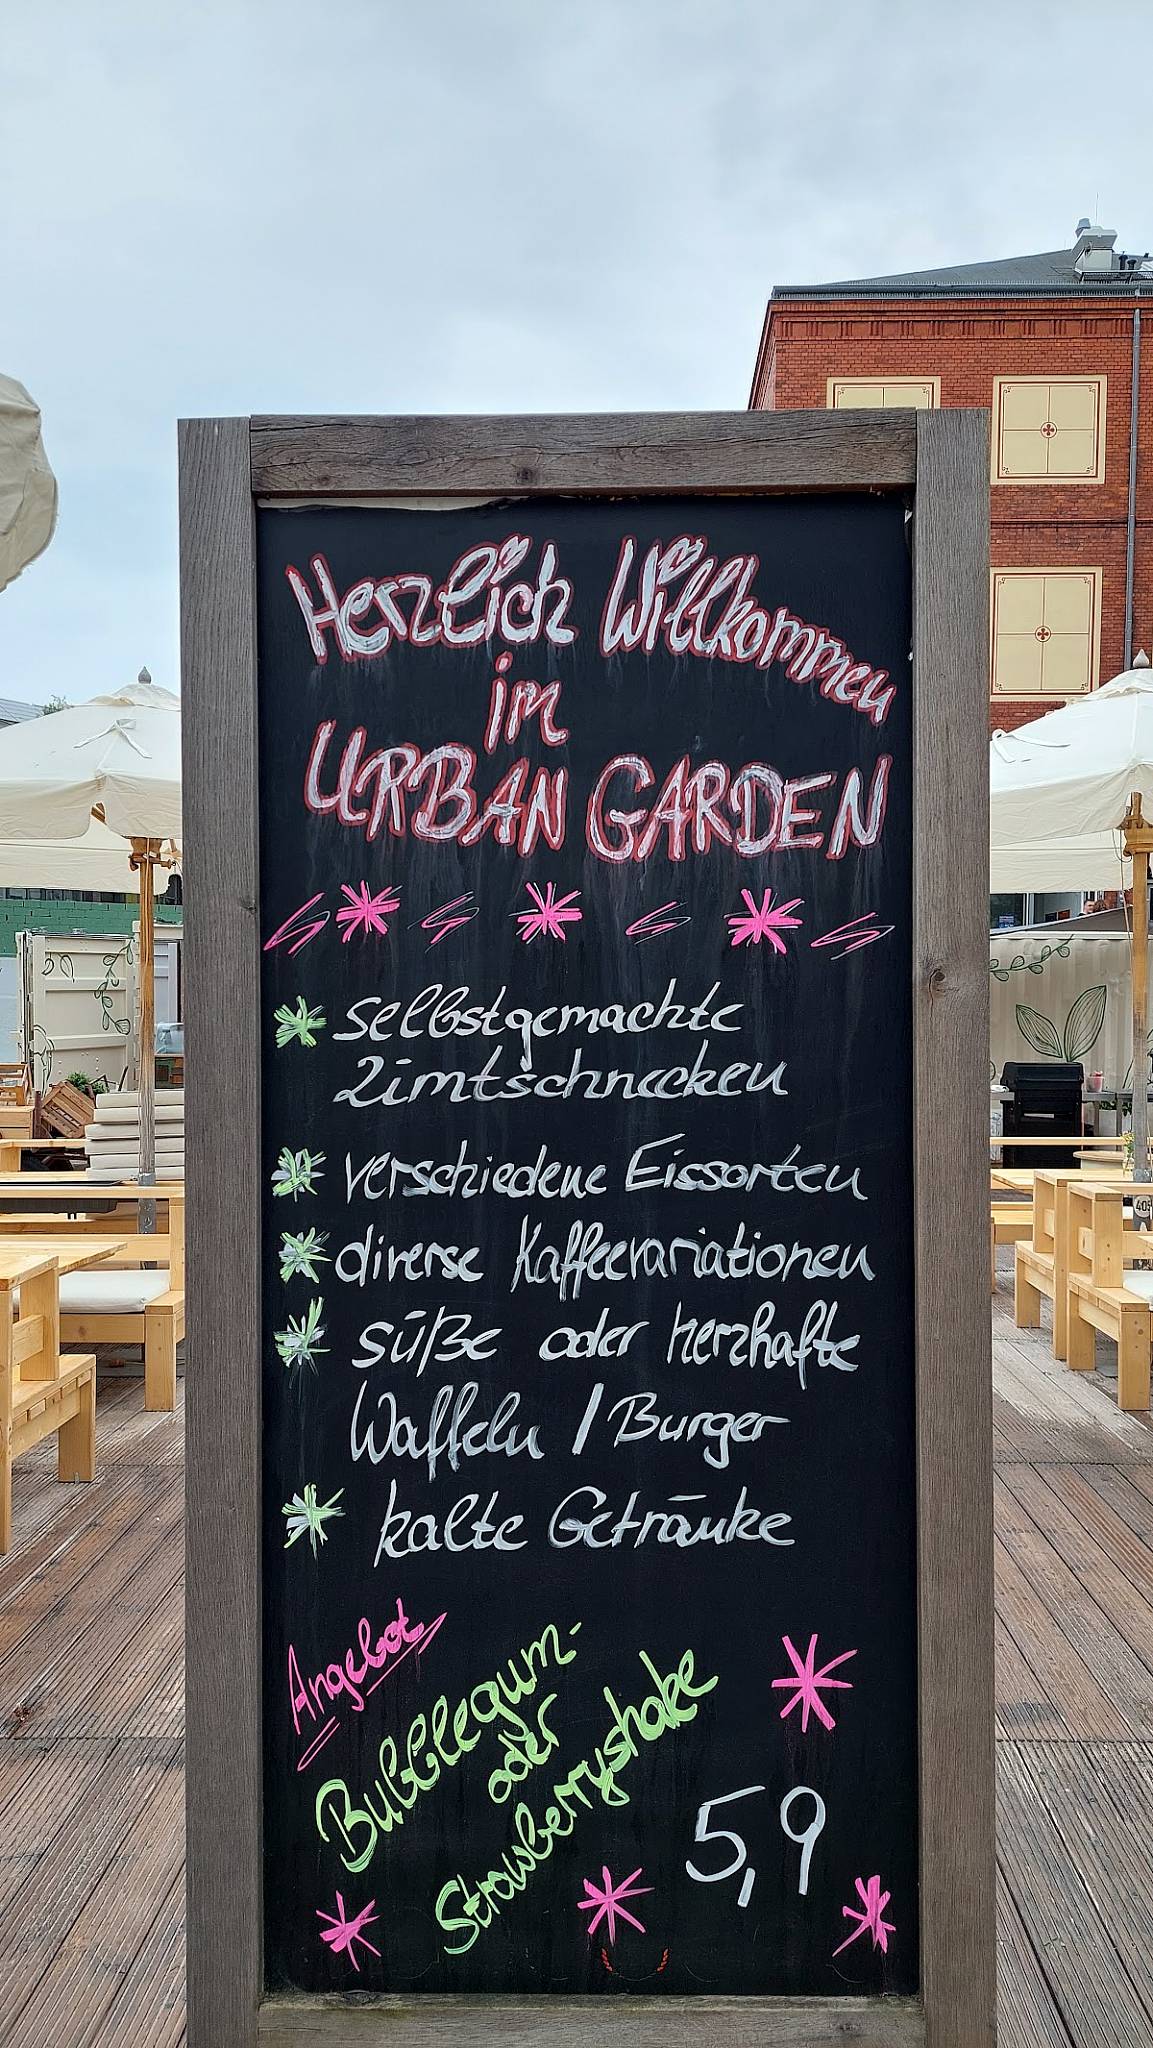 Herzlich Willkommen
im
URBAN GARDEN
selbstgemachte
Zimtschnecken
verschiedene Eissorten
diverse Kaffeevariationen
süße oder herzhafte
Waffeln / Burger
kalte Getränke
Angebot
Bubblegum-
oder
Strawberryshake
5,9
40